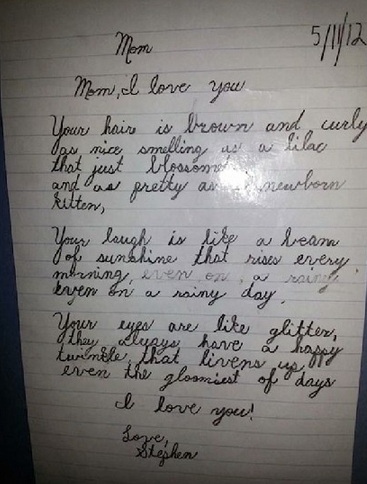 5/11/12
Mom
Mom, I love you
Your hair is brown and curly
as nice smelling as a lilac
that just blossomed
and as pretty as a newborn
kitten,
Your laugh is like a beam
of sunshine that rises every
morning, even on a rainy
even on a rainy day.
Your eyes are like glitter,
they always have a happy
twinkle that livens up
even the gloomiest of days
I love you!
Love,
Stephen